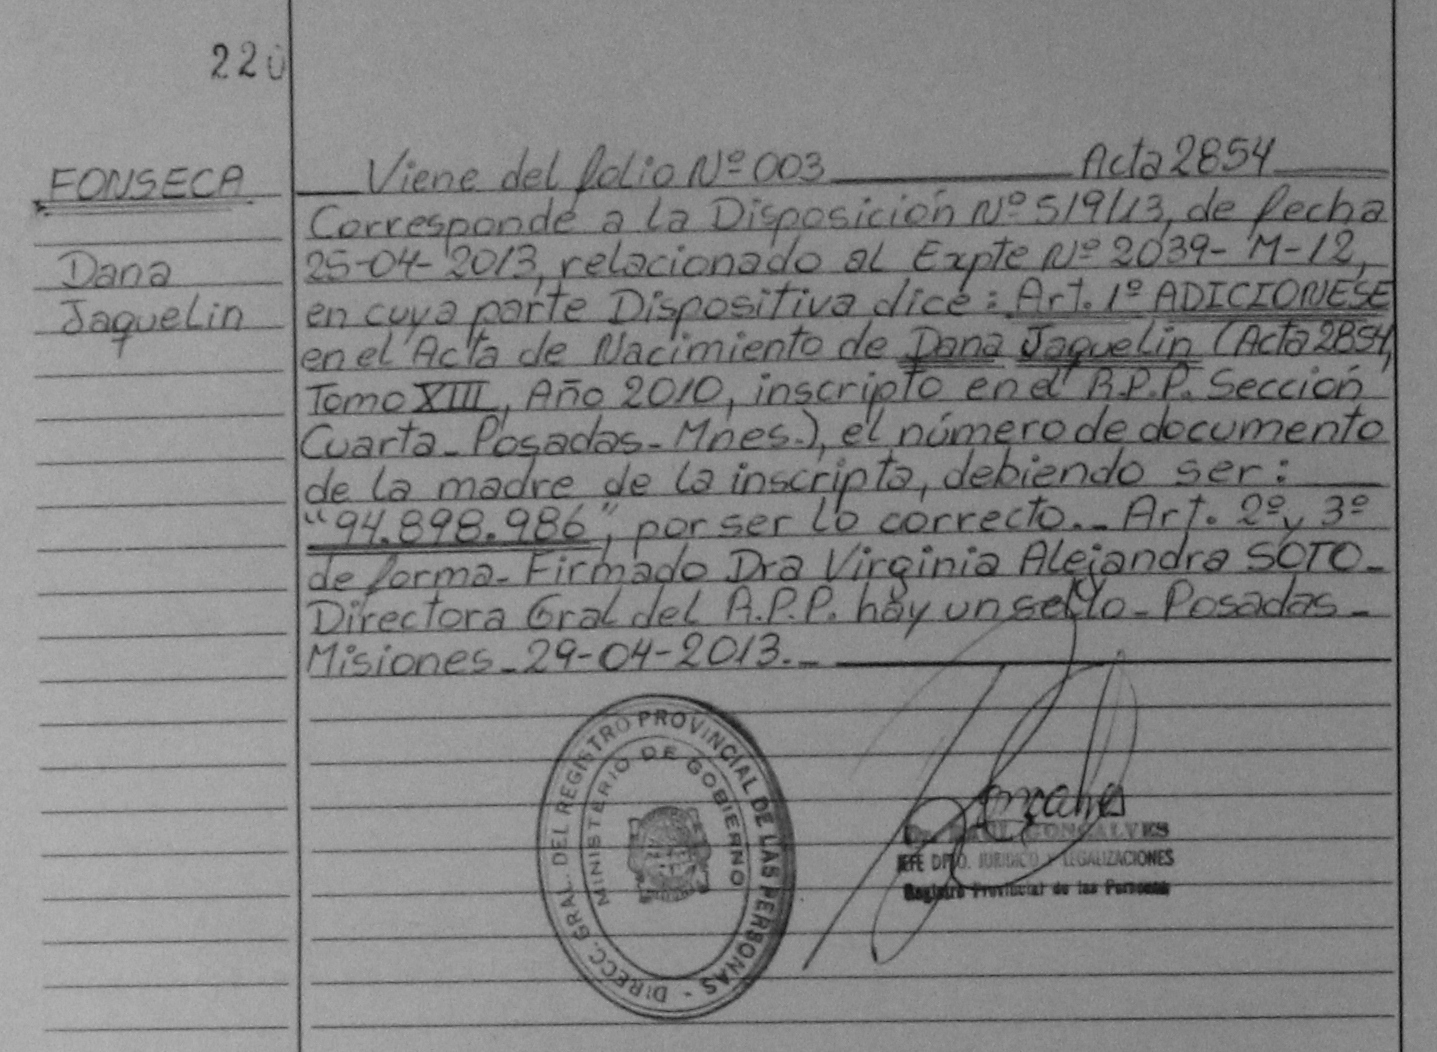 220
FONSECA
Dana
Jaquelin
Viene del folio Nº 003 Acta 2854
Corresponde a la Disposición Nº 519/13, de fecha
25-04-2013, relacionado al Expte Nº 2039-M-12,
en cuya parte Dispositiva dice: Art. 1º ADICIONESE
en el Acta de Nacimiento de Dana Jaquelin (Acta 2854,
Tomo XIII, Año 2010, inscripto en el R.P.P. Sección
Cuarta - Posadas - Mnes.), el número de documento
de la madre de la inscripta, debiendo ser:
"94.898.986", por ser lo correcto.- Art. 2º y 3º
de forma - Firmado Dra Virginia Alejandra SOTO -
Directora Gral del R.P.P. hay un sello - Posadas -
Misiones - 29-04-2013.-
DIRECC. GRAL. DEL REGISTRO PROVINCIAL DE LAS PERSONAS -
MINISTERIO DE GOBIERNO
GONSALVES
JEFE DPTO. JURIDICO Y LEGALIZACIONES
Registro Provincial de las Personas